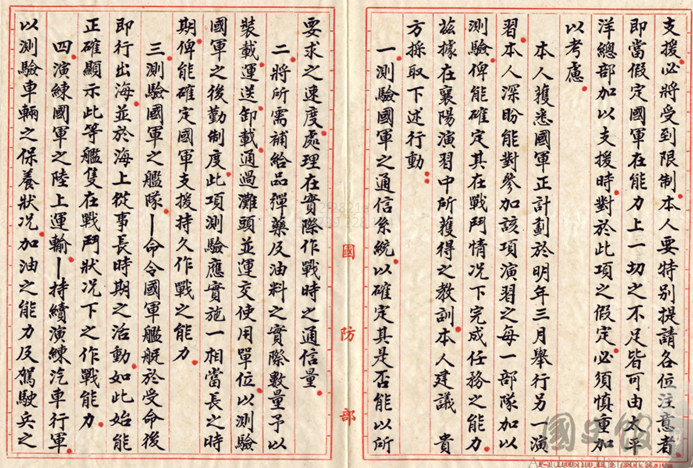 支援，必將受到限制。本人要特別提請各位注意者，
即當假定國軍在能力上一切之不足皆可由太平
洋總部加以支援時，對於此項之假定，必須慎重加
以考慮。
本人獲悉國軍正計劃於明年三月舉行另一演
習，本人深盼能對參加該項演習之每一部隊加以
測驗，俾能確定其在戰鬥情況下完成任務之能力。
茲據在襄陽演習中所獲得之教訓，本人建議 貴
方採取下述行動：
一測驗國軍之通信系統，以確定其是否能以所
國防部
要求之速度，處理在實際作戰時之通信量。
二將所需補給品彈藥及油料之實際數量予以
裝載運送，卸載，通過灘頭，並運交使用單位，以測驗
國軍之後勤制度。此項測驗應實施一相當長之時
期，俾能確定國軍支援持久作戰之能力。
三測驗國軍之艦隊—命令國軍艦艇於受命後
即行出海，並於海上從事長時期之活動，如此始能
正確顯示此等艦隻在戰鬥狀況下之作戰能力。
四演練國軍之陸上運輸—持續演練汽車行軍，
以測驗車輛之保養狀況，加油之能力及駕駛兵之
國史館